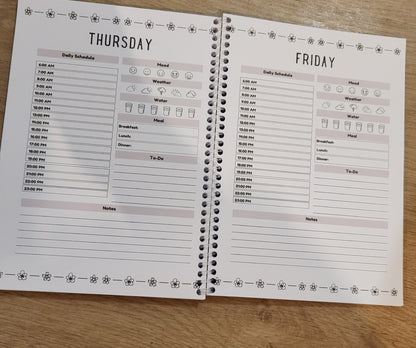 THURSDAY
Daily Schedule
6:00 AM
7:00 AM
8:00 AM
9:00 AM
10:00 AM
11:00 AM
12:00 PM
13:00 PM
14:00 PM
15:00 PM
16:00 PM
17:00 PM
18:00 PM
19:00 PM
20:00 PM
21:00 PM
22:00 PM
23:00 PM
Mood
Weather
Water
Meal
Breakfast:
Lunch:
Dinner:
To-Do
Notes
FRIDAY
Daily Schedule
6:00 AM
7:00 AM
8:00 AM
9:00 AM
10:00 AM
11:00 AM
12:00 PM
13:00 PM
14:00 PM
15:00 PM
16:00 PM
17:00 PM
18:00 PM
19:00 PM
20:00 PM
21:00 PM
22:00 PM
23:00 PM
Mood
Weather
Water
Meal
Breakfast:
Lunch:
Dinner:
To-Do
Notes